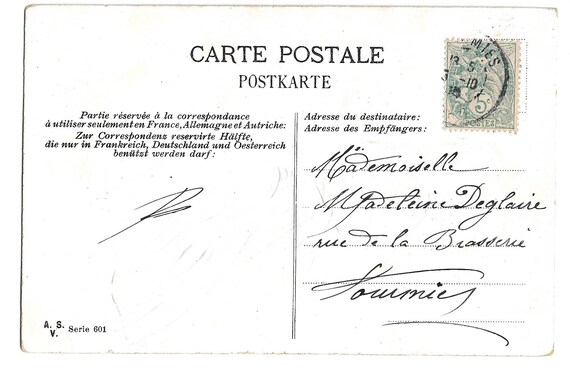 CARTE POSTALE
POSTKARTE
Partie réservée à la correspondance
à utiliser seulement en France, Allemagne et Autriche:
Zur Correspondenz reservirte Hälfte,
die nur in Frankreich, Deutschland und Oesterreich
benützt werden darf:
Adresse du destinataire:
Adresse des Empfängers:
MIES
5
Mademoiselle
Madeleine Deglaire
rue de la Brasserie
Fourmies
A. S.
V.
Serie 601